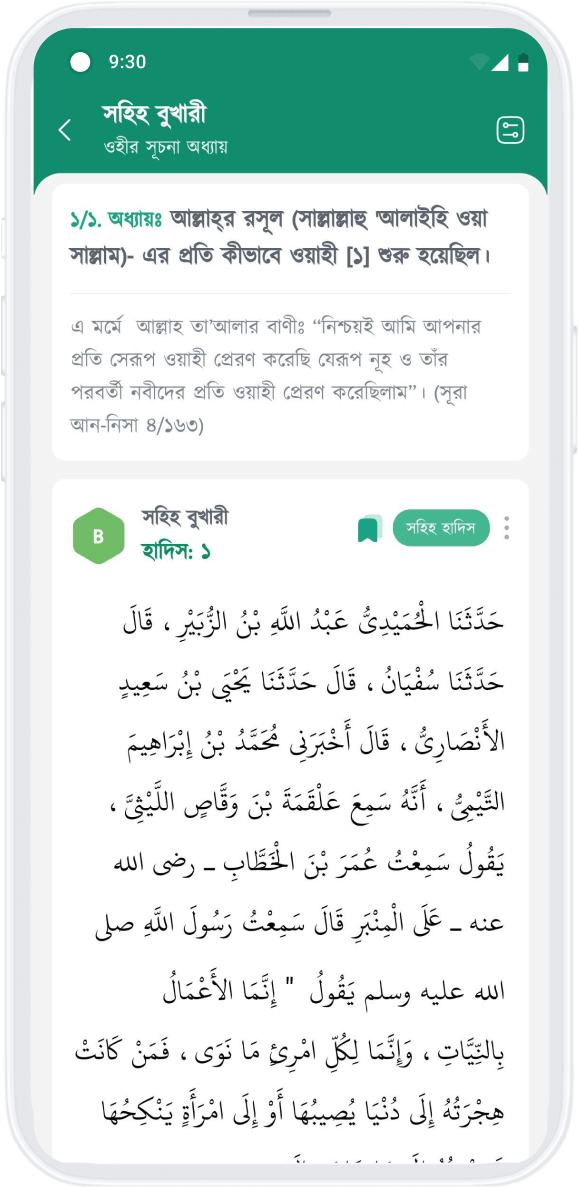 9:30
সহিহ বুখারী
ওহীর সূচনা অধ্যায়
১/১. অধ্যায়ঃ আল্লাহ্‌র রসূল (সাল্লাল্লাহু 'আলাইহি ওয়া
সাল্লাম)- এর প্রতি কীভাবে ওয়াহী [১] শুরু হয়েছিল।
এ মর্মে আল্লাহ তা'আলার বাণীঃ “নিশ্চয়ই আমি আপনার
প্রতি সেরূপ ওয়াহী প্রেরণ করেছি যেরূপ নূহ ও তাঁর
পরবর্তী নবীদের প্রতি ওয়াহী প্রেরণ করেছিলাম”। (সূরা
আন-নিসা ৪/১৬৩)
B
সহিহ বুখারী
হাদিস: ১
সহিহ হাদিস
حَدَّثَنَا الْحُمَيْدِيُّ عَبْدُ اللَّهِ بْنُ الزُّبَيْرِ ، قَالَ
حَدَّثَنَا سُفْيَانُ ، قَالَ حَدَّثَنَا يَحْيَى بْنُ سَعِيدٍ
الأَنْصَارِيُّ ، قَالَ أَخْبَرَنِي مُحَمَّدُ بْنُ إِبْرَاهِيمَ
التَّيْمِيُّ ، أَنَّهُ سَمِعَ عَلْقَمَةَ بْنَ وَقَّاصٍ اللَّيْثِيَّ ،
يَقُولُ سَمِعْتُ عُمَرَ بْنَ الْخَطَّابِ ـ رضى الله
عنه ـ عَلَى الْمِنْبَرِ قَالَ سَمِعْتُ رَسُولَ اللَّهِ صلى
الله عليه وسلم يَقُولُ " إِنَّمَا الأَعْمَالُ
بِالنِّيَّاتِ ، وَإِنَّمَا لِكُلِّ امْرِئٍ مَا نَوَى ، فَمَنْ كَانَتْ
هِجْرَتُهُ إِلَى دُنْيَا يُصِيبُهَا أَوْ إِلَى امْرَأَةٍ يَنْكِحُهَا